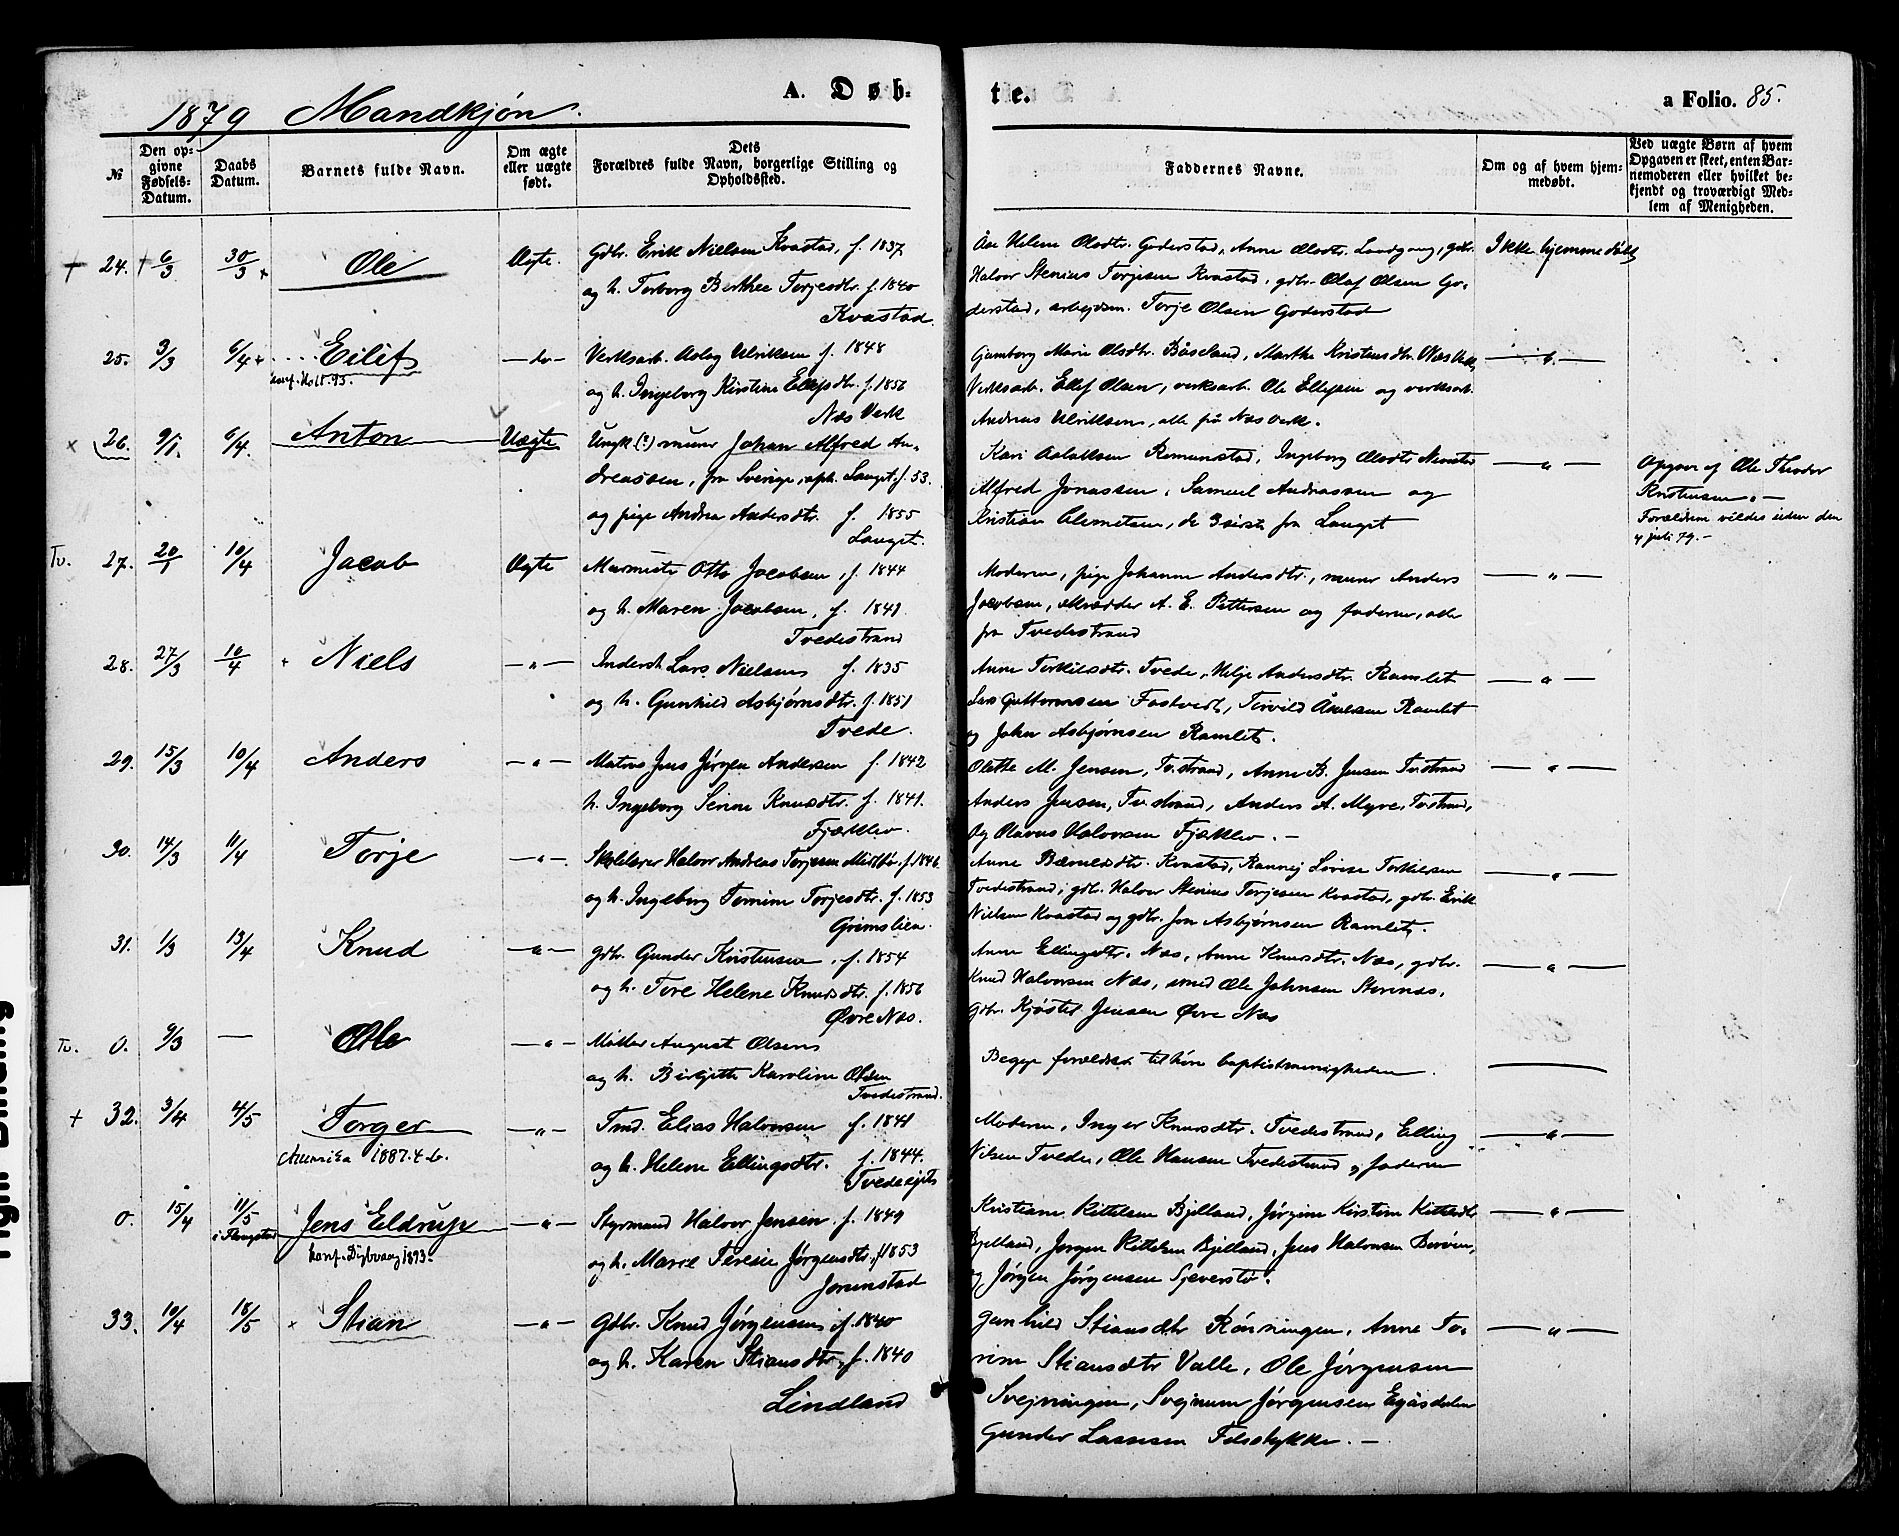 1879 Mandkjøn.
A. Døb-
te.
a Folio. 85.
№
Den op-
givne
Fødsels-
Datum.
Daabs
Datum.
Barnets fulde Navn.
Om ægte
eller uægte
født.
Dets
Forældres fulde Navn, borgerlige Stilling og
Opholdssted.
Faddernes Navne.
Om og af hvem hjem-
medøbt.
Ved uægte Børn af hvem
Opgaven er skeet, enten Bar-
nemoderen eller hvilket be-
kjendt og troværdigt Med-
lem af Menigheden.
24. 6/3 30/3 Ole Ægte. Gdbr. Erik Nielsen Kvastad, f. 1837
og h. Torborg Berthee Torjesdtr. f. 1840
Kvastad.
Åse Helene Olsdtr. Goderstad, Anne Olsdtr. Landgang, gdbr.
Halvor Stenius Torjesen Kvastad, gdbr. Olaf Olsen Go-
derstad, arbejdsm. Torje Olsen Goderstad
Ikke hjemmedøbt
25. 3/3 6/4 Eilif -do- Verksarb. Aslag Ulriksen f. 1848
konf. Holt 93.
og h. Ingeborg Kirstine Ellefsdtr. f. 1856
Næs Verk
Gunborg Marie Olsdtr. Båseland, Marthe Kristensdtr. Næs Verk,
Verksarb. Ellef Olsen, verksarb. Ole Ellefsen og verksarb.
Andreas Ulriksen, alle på Næs Verk.
26. 9/1 6/4 Anton Uægte Ungk. (?) murer Johan Alfred An-
dreassen, fra Sverige, oph. Langet, f. 53.
og pige Andrea Andersdtr. f. 1855
Langet.
Kari Aslaksen Romundstad, Ingeborg Olsdtr.
Alfred Jonassen, Samuel Andreassen og
Kristian Clemetsen, de 3 sidste fra Langet
Opgav af Ole Theodor
Kristensen. -
Forældrene viedes siden den
4 juli 79. -
Tv. 27. 20/1 10/4 Jacob Ægte Murmester Otto Jacobsen, f. 1844
og h. Maren Jacobsen, f. 1841.
Tvedestrand
Moderen, pige Johanne Andersdtr., murer Anders
Jacobsen, A. E. Pettersen og faderen, alle
fra Tvedestrand
28. 27/3 10/4 Niels Inderst Lars Nielsen f. 1835
og h. Gunhild Asbjørnsdtr. f. 1851
Tvede.
Anne Terkilsdtr. Tvede, Helje Andersdtr. Ramlet
Lars Guttormsen Fostvedt, Torvild Åselsen Ramlet
og John Asbjørnsen Ramlet.
29. 15/3 10/4 Anders Matros Jens Jørgen Andersen f. 1842
h. Ingeborg Serine Knudsdtr. f. 1841.
Fjæklev.
Olette M. Jensen, Tv.strand, Anne B. Jensen Tv.strand
Anders Jensen, Tv.strand, Anders A. Myre, Tv.strand,
Og Olavus Halvorsen Fjæklev. -
30. 14/3 11/4 Torje Skolelærer Halvor Andreas Torjesen Midtbø, f. 1846
og h. Ingeborg Tomine Torjesdtr. f. 1853
Grimslien.
Anne Kvastad, Rannej Lovise Terkilsen
Tvedestrand; gdbr. Halvor Stenius Torjesen Kvastad, gdbr. Erik
Nielsen Kvastad og gdbr. Jon Asbjørnsen Ramlet.
31. 1/3 13/4 Knud gdbr. Gunder Kristensen, f. 1854
og h. Tore Helene Knudsdtr. f. 1856
Øvre Næs.
Anne Ellingsdtr. Næs, Anne Knudsdtr. Næs, gdbr.
Knud Halvorsen Næs, smed Ole Johnsen Sternæs,
gdbr. Kjøstel Jensen Øvre Næs
Tv. 0. 9/3 — Ole Møller August Olsen
og h. Birgitte Karoline Olsen
Tvedestrand.
Begge forældre tilhøre baptistmenigheden.
32. 3/4 4/5 Torger Tmd. Elias Halvorsen f. 1841
Amerika 1887.4.6.
og h. Helene Ellingsdtr. f. 1844.
Moderen, Inger Knudsdtr. Tvedestrand, Elling
Nilsen Tvede, Ole Hansen Tvedestrand og faderen
0. 15/4 11/5 Jens Eldrup Styrmand Halvor Jensen f. 1849
i Flangstad
konf. Dybvaag 1893.
og h. Maree Teresie Jørgensdtr. f. 1853
Jorunstad
Kristiane Kittelsen Bjelland, Jørgine Kirstine Kittelsdtr
Bjelland, Jørgen Kittelsen Bjelland, Jens Halvorsen Borøen,
og Jørgen Jørgensen Sjeverstø.
33. 10/4 18/5 Stian Gdbr. Knud Jørgensen f. 1840
og h. Karen Stiansdtr. f. 1840
Lindland
Gunhild Stiansdtr Rønningen, Anne To-
rine Stiansdtr Valle, Ole Jørgensen
Svejningen, Svejnum Jørgensen Egåsdalen
Gunder Lassesen Felsstykke. -